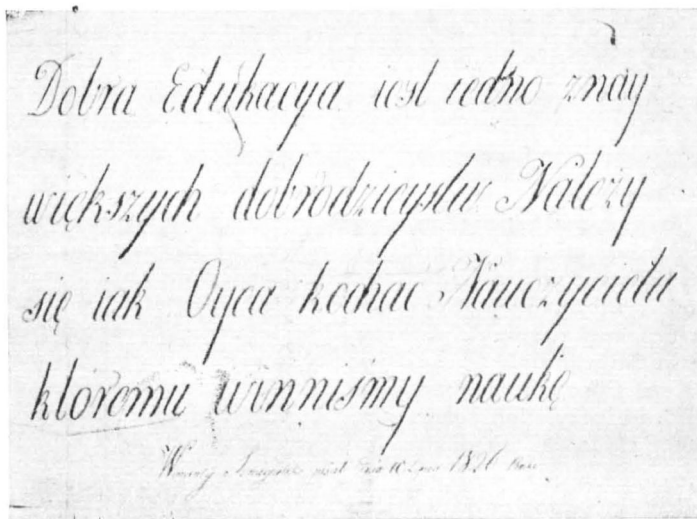 Dobra Edukacya iest iedno znay
większych dobrodzieystw. Należy
się iak Oyca kochać Nauczyciela
któremu winniśmy naukę
Wincenty pisał dnia 10 1826 Roku